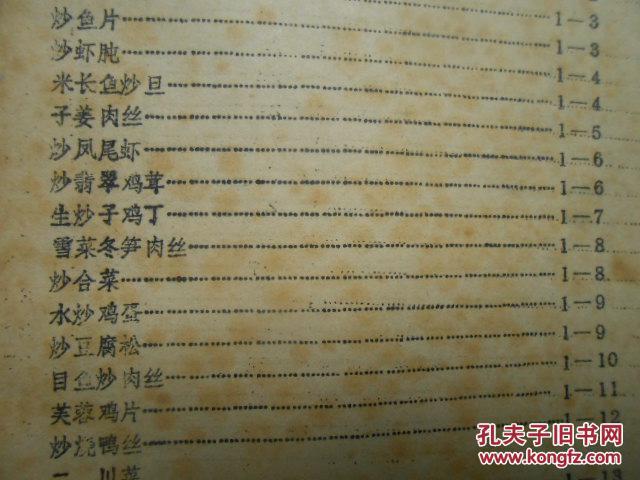 炒鱼片 1—3
炒虾肫 1—3
米长鱼炒旦 1—4
子姜肉丝 1—4
炒凤尾虾 1—5
炒翡翠鸡茸 1—6
生炒子鸡丁 1—6
雪菜冬笋肉丝 1—7
炒合菜 1—8
水炒鸡蛋 1—8
炒豆腐松 1—9
目鱼炒肉丝 1—9
芙蓉鸡片 1—10
炒烧鸭丝 1—11
1—12
川菜 1—13
孔夫子旧书网
www.kongfz.com